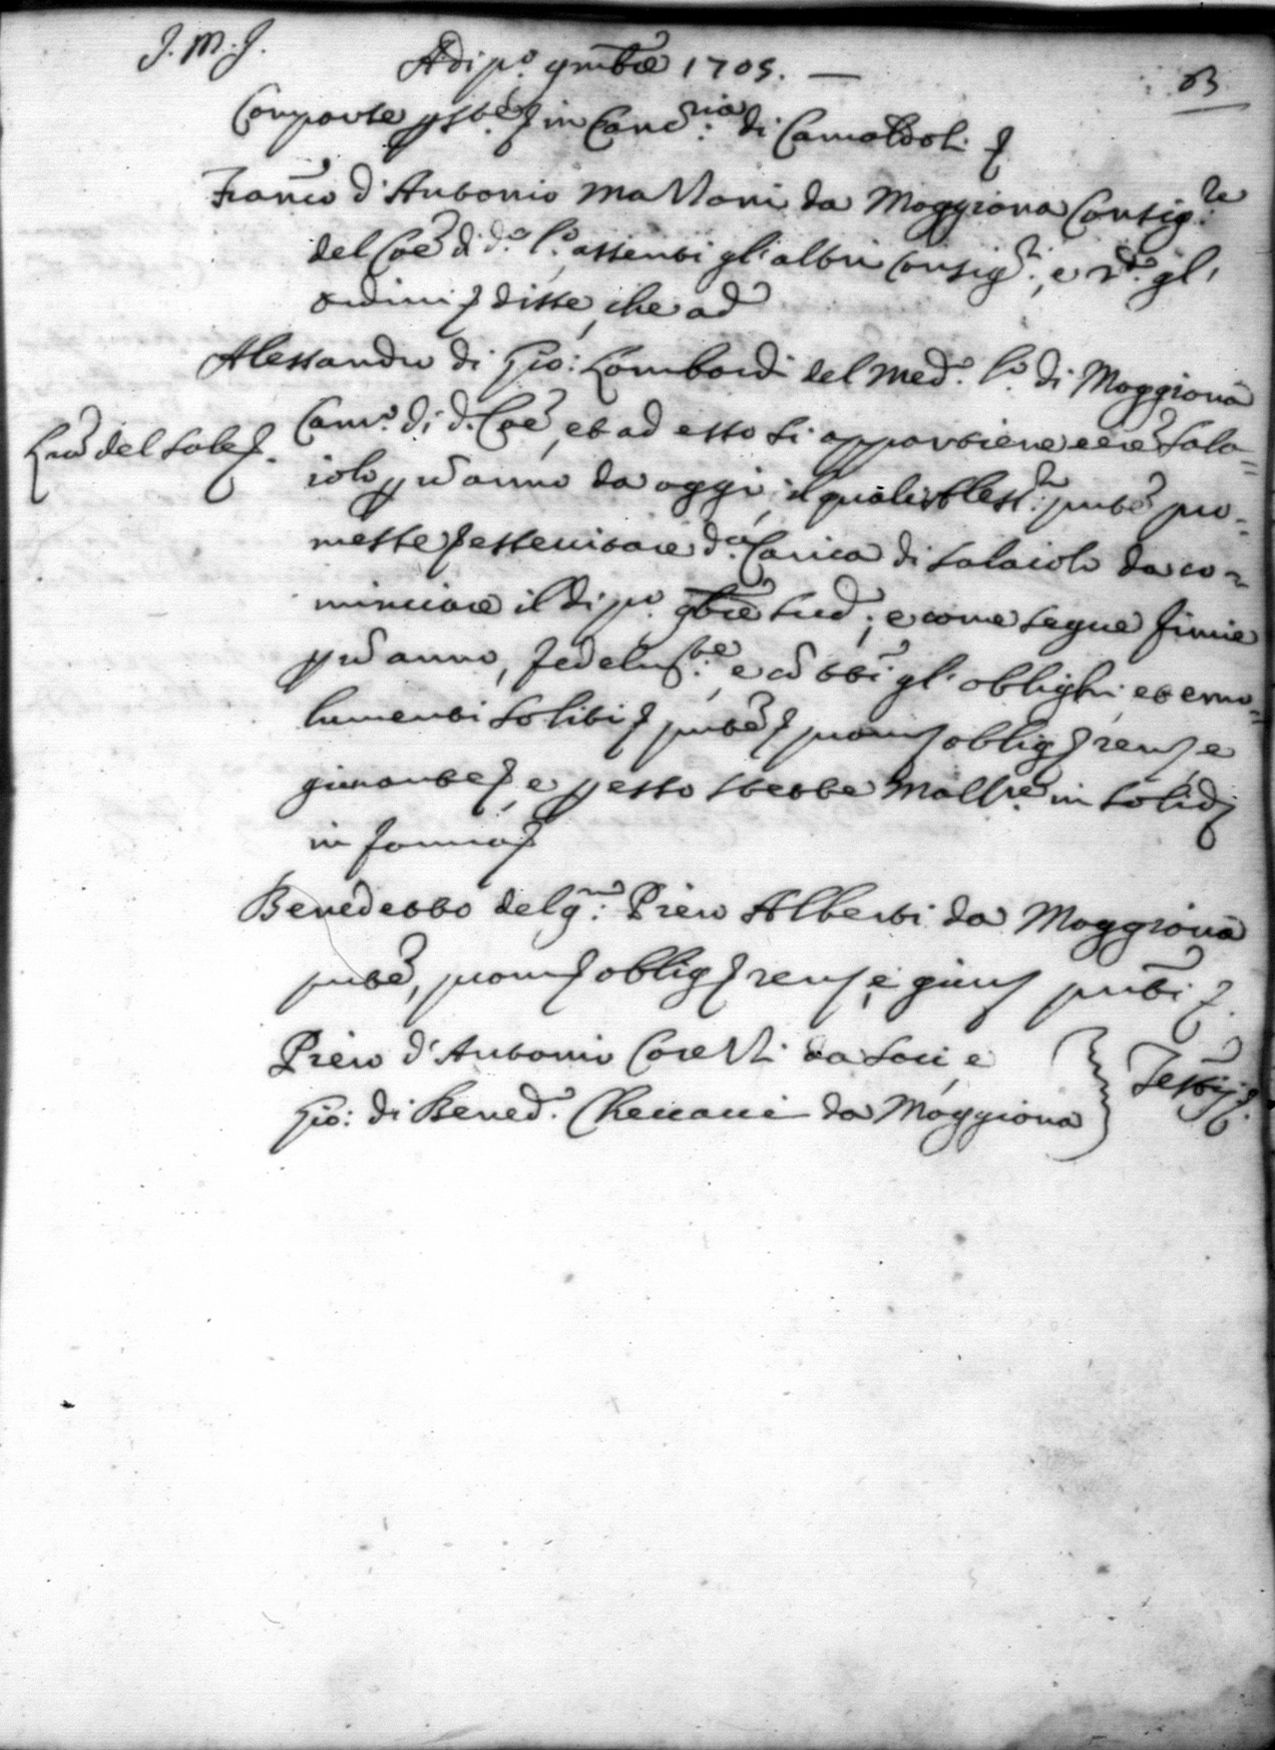 J. M. J.
Adi p.o 9mbre 1705. —
63
Comparse p.nte in Canc.ria di Camaldoli
Franc.o d'Antonio Mattoni da Moggiona Consig.re
del Coe di d.o l.o, assenti gl'altri consig.ri, e s.do gl'
ordini disse, che ad
Alessandro di Gio: Lombardi del med.o l.o di Moggiona
Cam.o di d. Coe, et ad esso si appartiene essere Sala=
Lro del sale
iolo p un anno da oggi, il quale Aless.ro pnte pro=
messe essercitare d.a Carica di salaiolo da co=
minciare il di p.o 9bre sud.o; e come segue finire
p un anno, fedelm.te e co tti gl'oblighi et emo=
lumenti soliti pnte prom oblig ren e
giurante, e p esso stette Mallre in solid
in forma
Benedetto del q.m Piero Alberti da Moggiona
pnte, prom oblig ren, e giur pnti
Piero d'Antonio Coretti da Soci, e
Gio: di Bened.o Checcacci da Moggiona
Testij